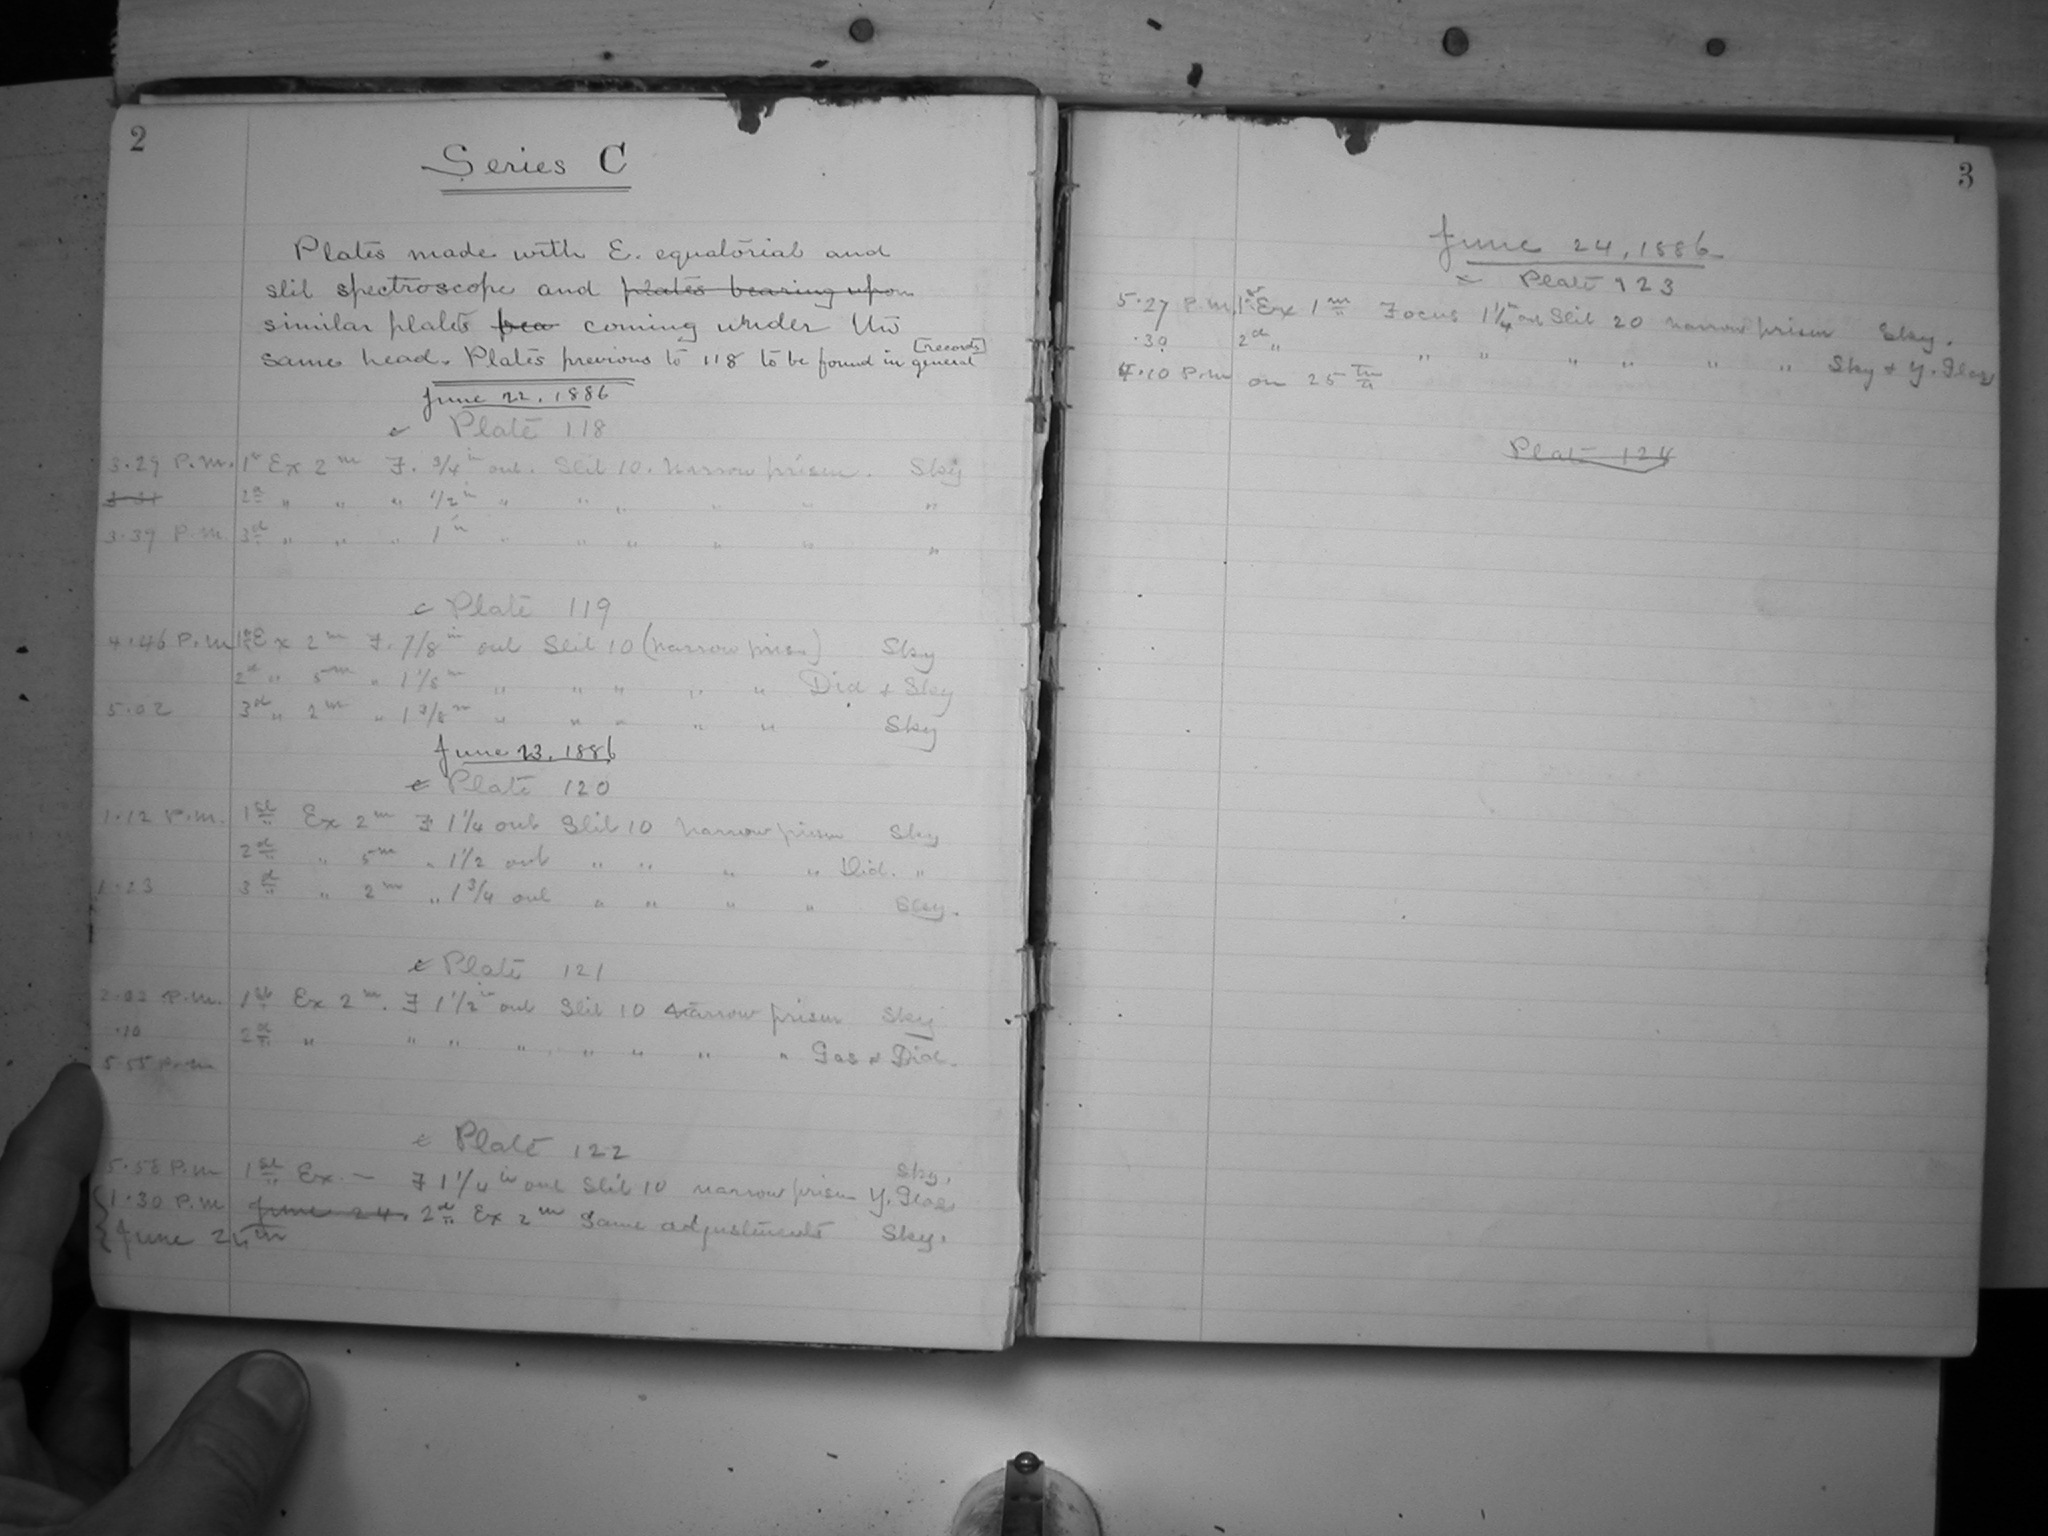 2
Series C
Plates made with E. equatorial and
slit spectroscope and plates bearing upon
similar plates bea coming under the
same head. Plates previous to 118 to be found in general [records]
June 22, 1886
c Plate 118
3.29 P.M. 1st Ex 2m F. 3/4 in out. Slit 10. Narrow prism. Sky
2d " " " 1/2 in " " " " " "
3.39 P.M. 3d " " " 1 in " " " " " "
c Plate 119
4.46 P.M. 1st Ex 2m F. 7/8 in out Slit 10 (narrow prism) Sky
2d " 5m " 1 1/8 in " " " " " Did & Sky
5.02 3d " 2m " 1 3/8 in " " " " " Sky
June 23, 1886
c Plate 120
1.12 P.M. 1st Ex 2m F 1 1/4 out Slit 10 narrow prism Sky
2d " 5m " 1 1/2 out " " " " Did. "
1.23 3d " 2m " 1 3/4 out " " " " Sky.
c Plate 121
2.02 P.M. 1st Ex 2m. F 1 1/2 in out Slit 10 narrow prism Sky
.10 2d " " " " " " " " Gas & Did.
5.55 P.M.
c Plate 122
Sky,
5.58 P.M 1st Ex. — F 1 1/4 in out Slit 10 narrow prism Y. Glass
1.30 P.M June 24. 2d Ex 2m Same adjustments Sky.
June 24th
3
June 24, 1886
c Plate 123
5.27 P.M. 1st Ex 1m Focus 1 1/4 in out Slit 20 narrow prism Sky.
.30 2d " " " " " " " Sky & Y. Glass
4.10 P.M on 25th
Plate 124